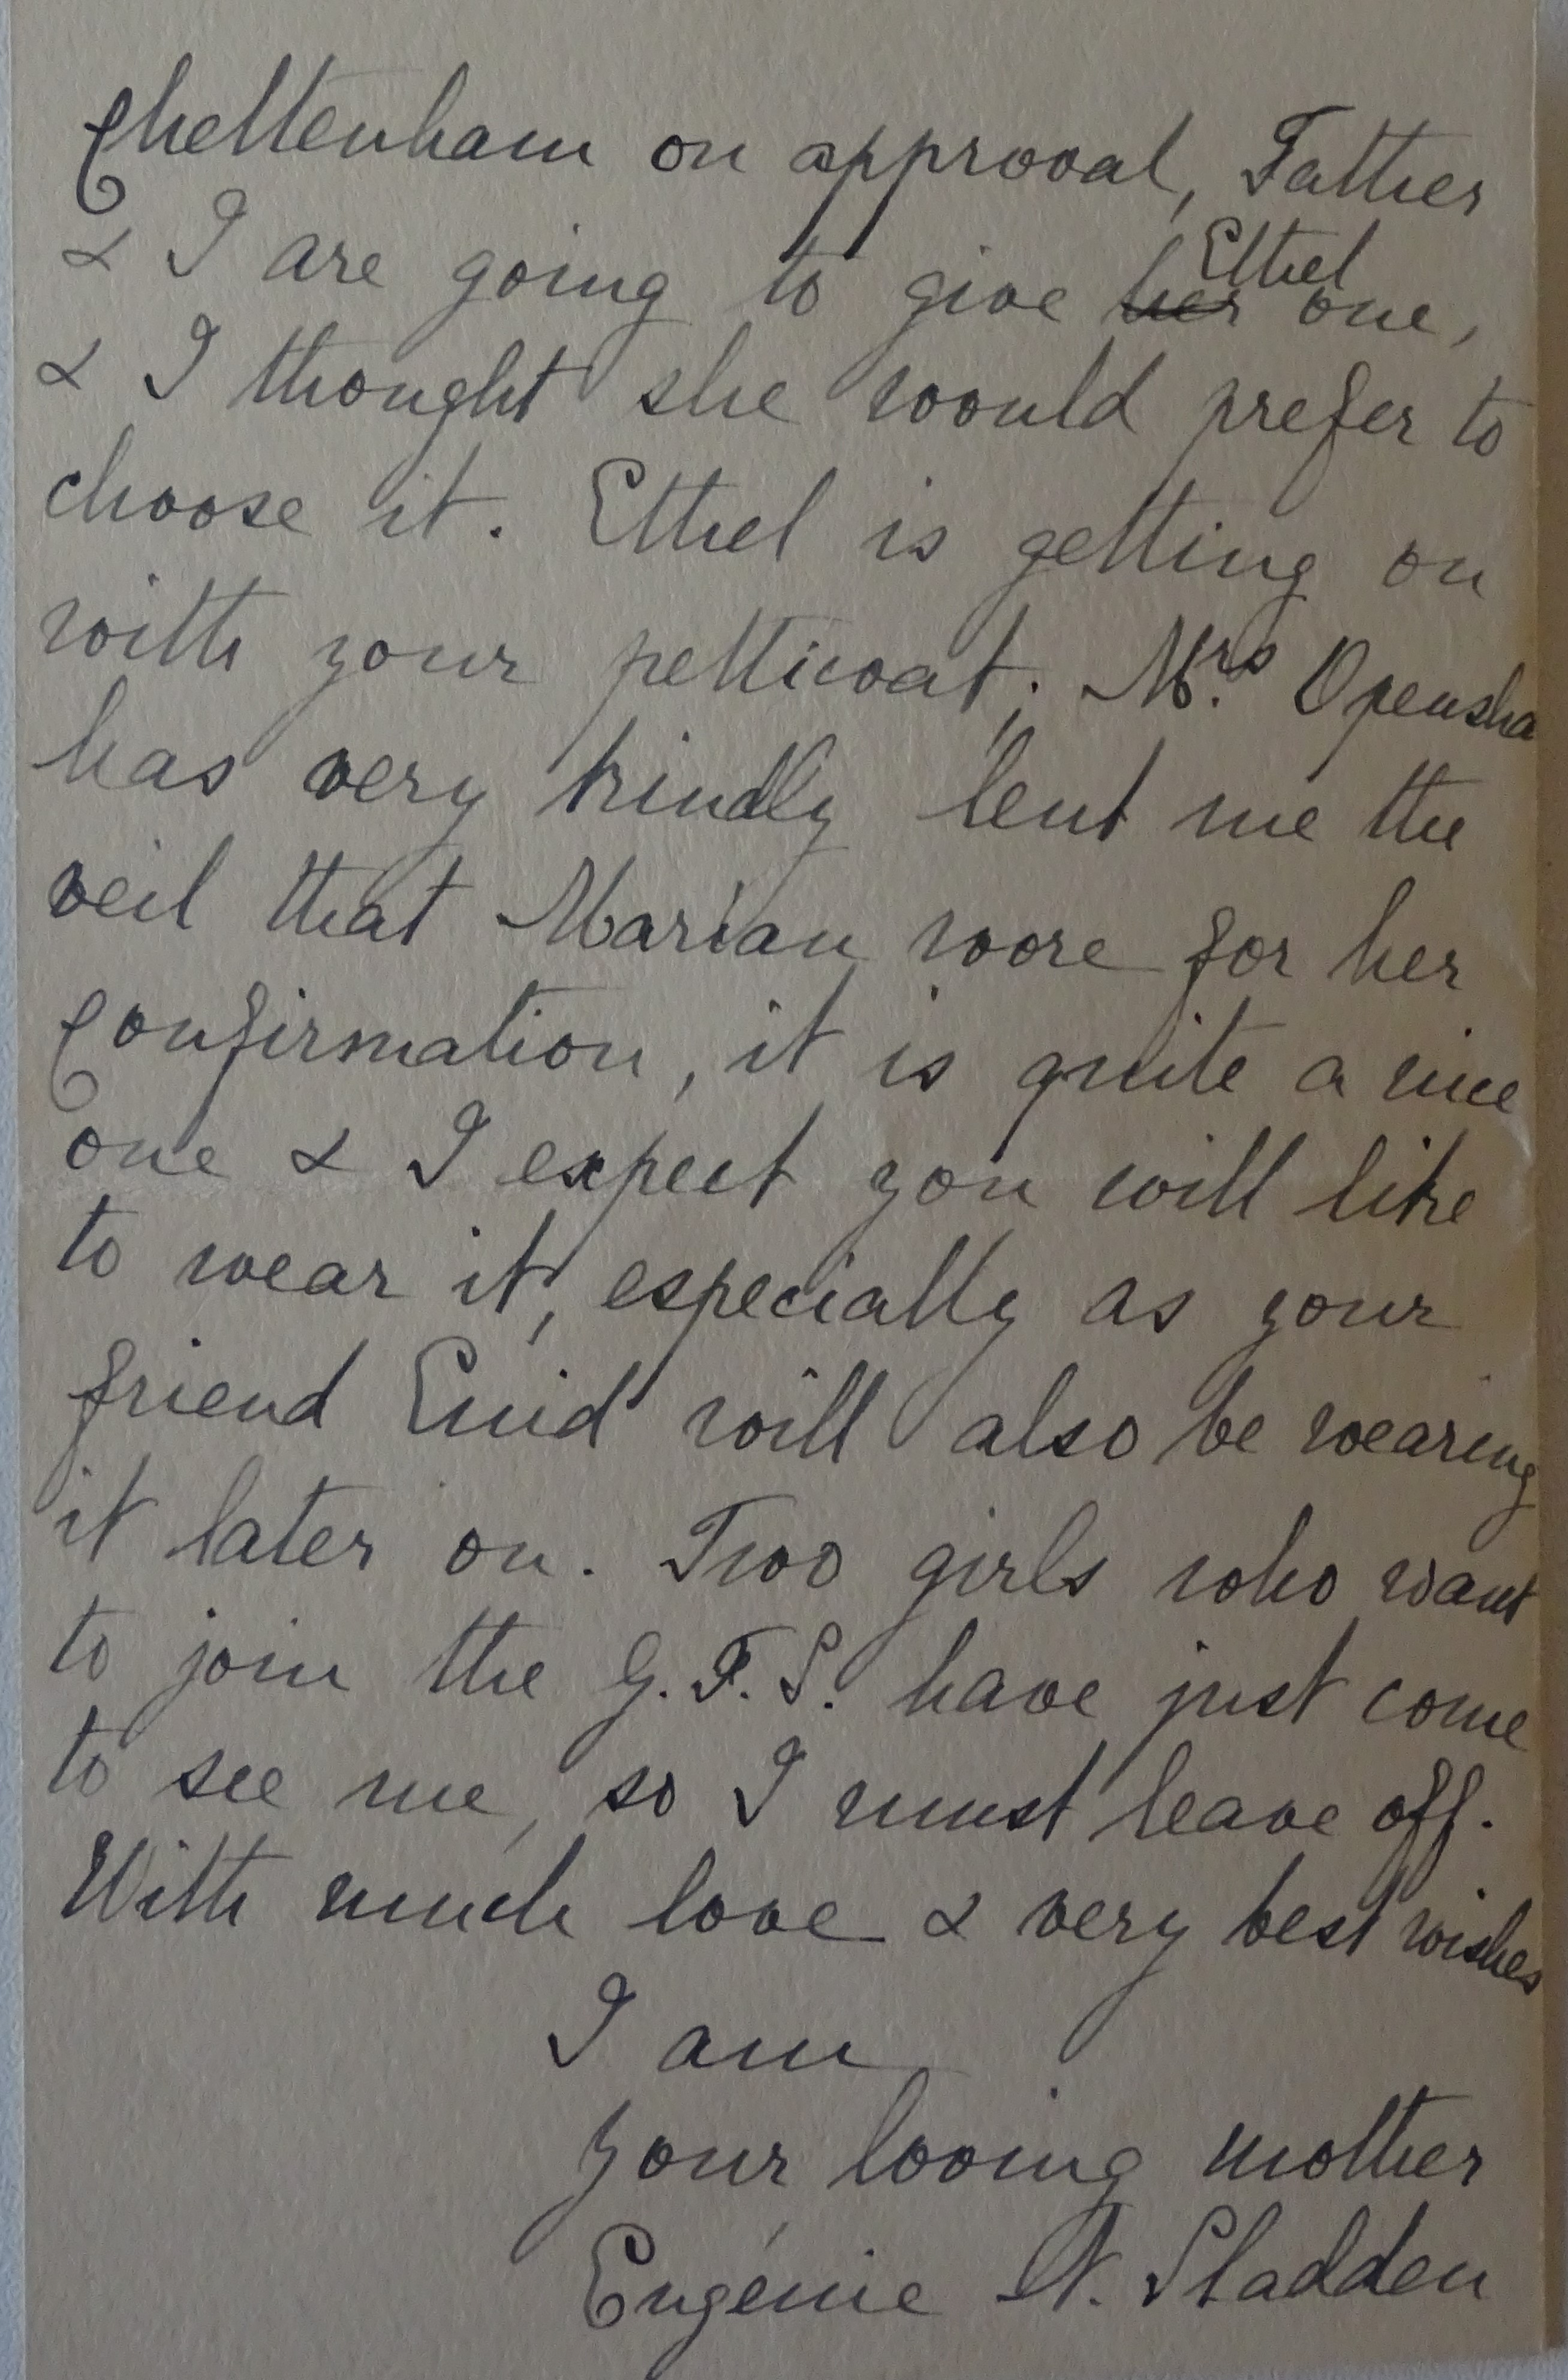 Cheltenham on approval, Father
& I are going to give ~~her~~ Ethel one,
& I thought she would prefer to
choose it. Ethel is getting on
with your petticoat. Mrs. Opensha
has very kindly lent me the
veil that Marian wore for her
Confirmation, it is quite a nice
one & I expect you will like
to wear it, especially as your
friend Enid will also be wearing
it later on. Two girls who want
to join the G.F.S. have just come
to see me, so I must leave off.
With much love & very best wishes
I am
your loving mother
Eugénie N. Sladden